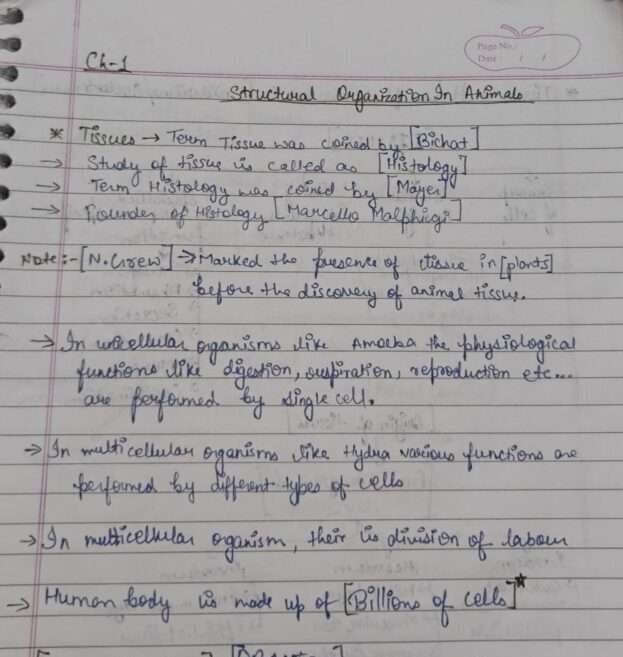 Page No.
Date / /
Ch-1
Structural Organization In Animals
* Tissues → Term Tissue was coined by [Bichat]
→ Study of tissue is called as [Histology]
→ Term Histology was coined by [Mayer]
→ Founder of Histology [Marcello Malphigi]
Note:- [N.Grew] → Marked the presence of tissue in [plants]
before the discovery of animal tissue.
→ In unicellular organisms like Amoeba the physiological
functions like digestion, respiration, reproduction etc...
are performed by single cell.
→ In multicellular organisms like Hydra various functions are
performed by different types of cells
→ In multicellular organism, their is division of labour
→ Human body is made up of [Billions of cells]*